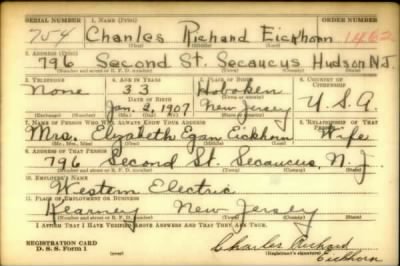 SERIAL NUMBER 1. NAME (Print) ORDER NUMBER
754 Charles Richard Eickhorn 1462
(First) (Middle) (Last)
2. ADDRESS (Print)
796 Second St. Secaucus Hudson N.J.
(Number and street or R. F. D. number) (Town) (County) (State)
3. TELEPHONE 4. AGE IN YEARS 5. PLACE OF BIRTH 6. COUNTRY OF CITIZENSHIP
None 33 Hoboken
DATE OF BIRTH (Town or county) U.S.A.
Jan. 2, 1907 New Jersey
(Exchange) (Number) (Mo.) (Day) (Yr.) (State or country)
7. NAME OF PERSON WHO WILL ALWAYS KNOW YOUR ADDRESS 8. RELATIONSHIP OF THAT PERSON
Mrs. Elizabeth Egan Eickhorn Wife
(Mr., Mrs., Miss) (First) (Middle) (Last)
9. ADDRESS OF THAT PERSON
796 Second St. Secaucus, N.J.
(Number and street or R. F. D. number) (Town) (County) (State)
10. EMPLOYER'S NAME
Western Electric
11. PLACE OF EMPLOYMENT OR BUSINESS
Kearney New Jersey
(Number and street or R. F. D. number) (Town) (County) (State)
I AFFIRM THAT I HAVE VERIFIED ABOVE ANSWERS AND THAT THEY ARE TRUE.
REGISTRATION CARD
D. S. S. Form 1 Charles Richard
(Registrant's signature) Eickhorn